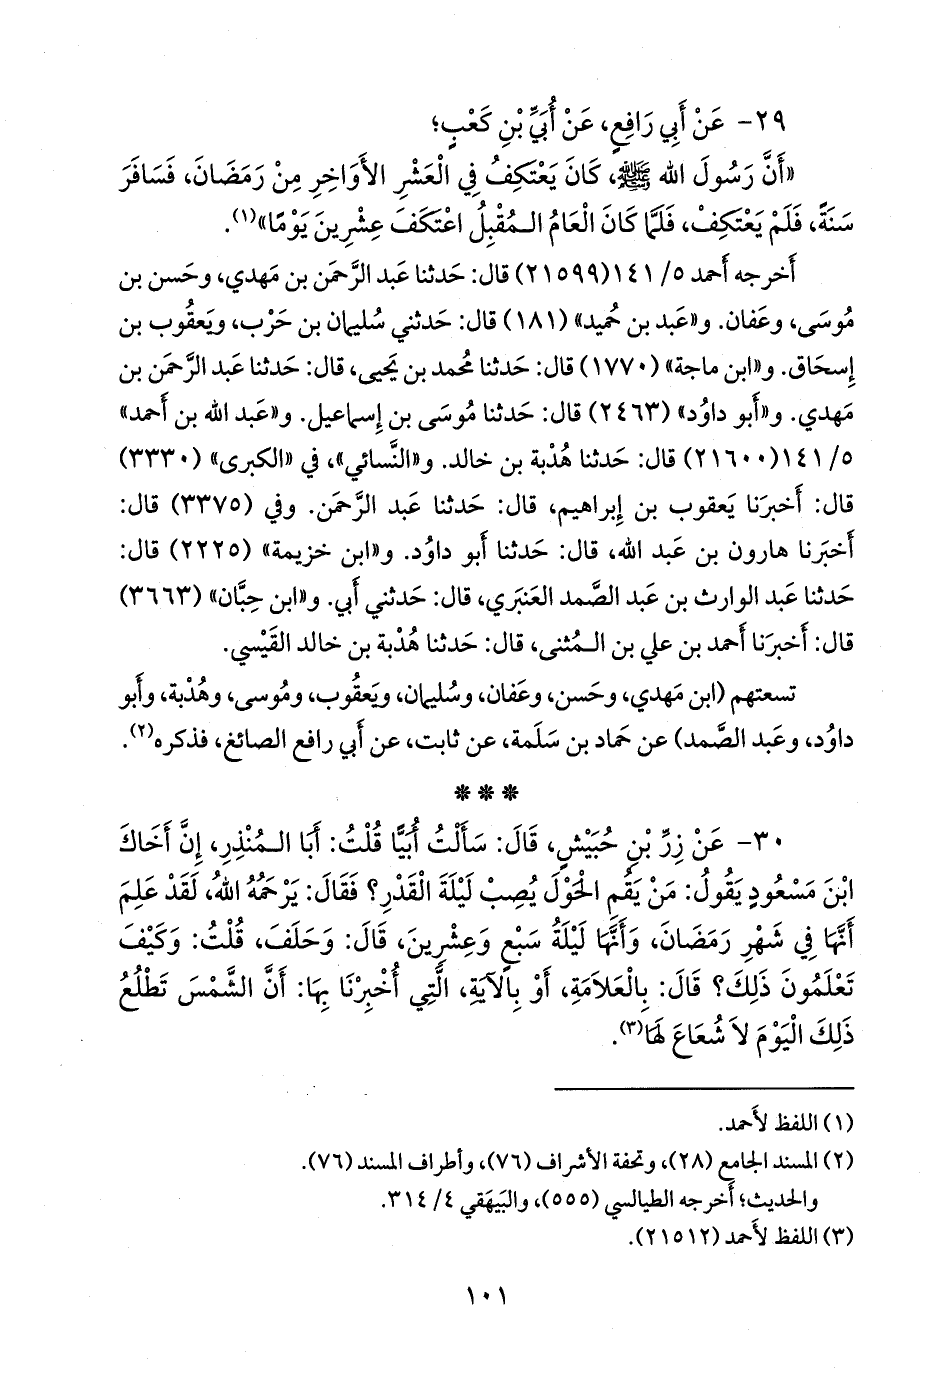 ٢٩- عَنْ أَبِي رَافِعٍ، عَنْ أُبَيِّ بْنِ كَعْبٍ؛
«أَنَّ رَسُولَ الله ﷺ، كَانَ يَعْتَكِفُ فِي الْعَشْرِ الأَوَاخِرِ مِنْ رَمَضَانَ، فَسَافَرَ
سَنَةً، فَلَمْ يَعْتَكِفْ، فَلَمَّا كَانَ الْعَامُ الـمُقْبِلُ اعْتَكَفَ عِشْرِينَ يَوْمًا»(١).
أخرجه أَحمد ٥/ ١٤١(٢١٥٩٩) قال: حَدثنا عَبد الرَّحمَن بن مَهدي، وحَسن بن
مُوسَى، وعَفان. و«عَبد بن حُميد» (١٨١) قال: حَدثني سُليمان بن حَرْب، ويَعقُوب بن
إِسحَاق. و«ابن ماجة» (١٧٧٠) قال: حَدثنا مُحمد بن يَحيى، قال: حَدثنا عَبد الرَّحمَن بن
مَهدي. و«أَبو داوُد» (٢٤٦٣) قال: حَدثنا مُوسَى بن إِسماعيل. و«عَبد الله بن أَحمد»
٥/ ١٤١(٢١٦٠٠) قال: حَدثنا هُدْبة بن خالد. و«النَّسائي»، في «الكبرى» (٣٣٣٠)
قال: أَخبرَنا يَعقوب بن إِبراهيم، قال: حَدثنا عَبد الرَّحمَن. وفي (٣٣٧٥) قال:
أَخبَرنا هارون بن عَبد الله، قال: حَدثنا أَبو داوُد. و«ابن خزيمة» (٢٢٢٥) قال:
حَدثنا عَبد الوارث بن عَبد الصَّمد العَنبَري، قال: حَدثني أَبي. و«ابن حِبَّان» (٣٦٦٣)
قال: أَخبرَنا أَحمد بن علي بن الـمُثنى، قال: حَدثنا هُدْبة بن خالد القَيْسي.
تسعتهم (ابن مَهدي، وحَسن، وعَفان، وسُليمان، ويَعقُوب، ومُوسى، وهُدْبة، وأَبو
داوُد، وعَبد الصَّمد) عن حَماد بن سَلَمة، عن ثابت، عن أَبي رافع الصائغ، فذكره(٢).
* * *
٣٠- عَنْ زِرِّ بْنِ حُبَيْشٍ، قَالَ: سَأَلْتُ أُبَيًّا قُلْتُ: أَبَا الـمُنْذِرِ، إِنَّ أَخَاكَ
ابْنَ مَسْعُودٍ يَقُولُ: مَنْ يَقُمِ الْحَوْلَ يُصِبْ لَيْلَةَ الْقَدْرِ؟ فَقَالَ: يَرْحَمُهُ اللهُ، لَقَدْ عَلِمَ
أَنَّهَا فِي شَهْرِ رَمَضَانَ، وَأَنَّهَا لَيْلَةُ سَبْعٍ وَعِشْرِينَ، قَالَ: وَحَلَفَ، قُلْتُ: وَكَيْفَ
تَعْلَمُونَ ذَلِكَ؟ قَالَ: بِالْعَلاَمَةِ، أَوْ بِالآيَةِ، الَّتِي أُخْبِرْنَا بِهَا: أَنَّ الشَّمْسَ تَطْلُعُ
ذَلِكَ الْيَوْمَ لاَ شُعَاعَ لَهَا(٣).
(١) اللفظ لأَحمد.
(٢) المسند الجامع (٢٨)، وتحفة الأشراف (٧٦)، وأطراف المسند (٧٦).
والحديث؛ أَخرجه الطيالسي (٥٥٥)، والبَيهَقي ٤/ ٣١٤.
(٣) اللفظ لأَحمد (٢١٥١٢).
١٠١